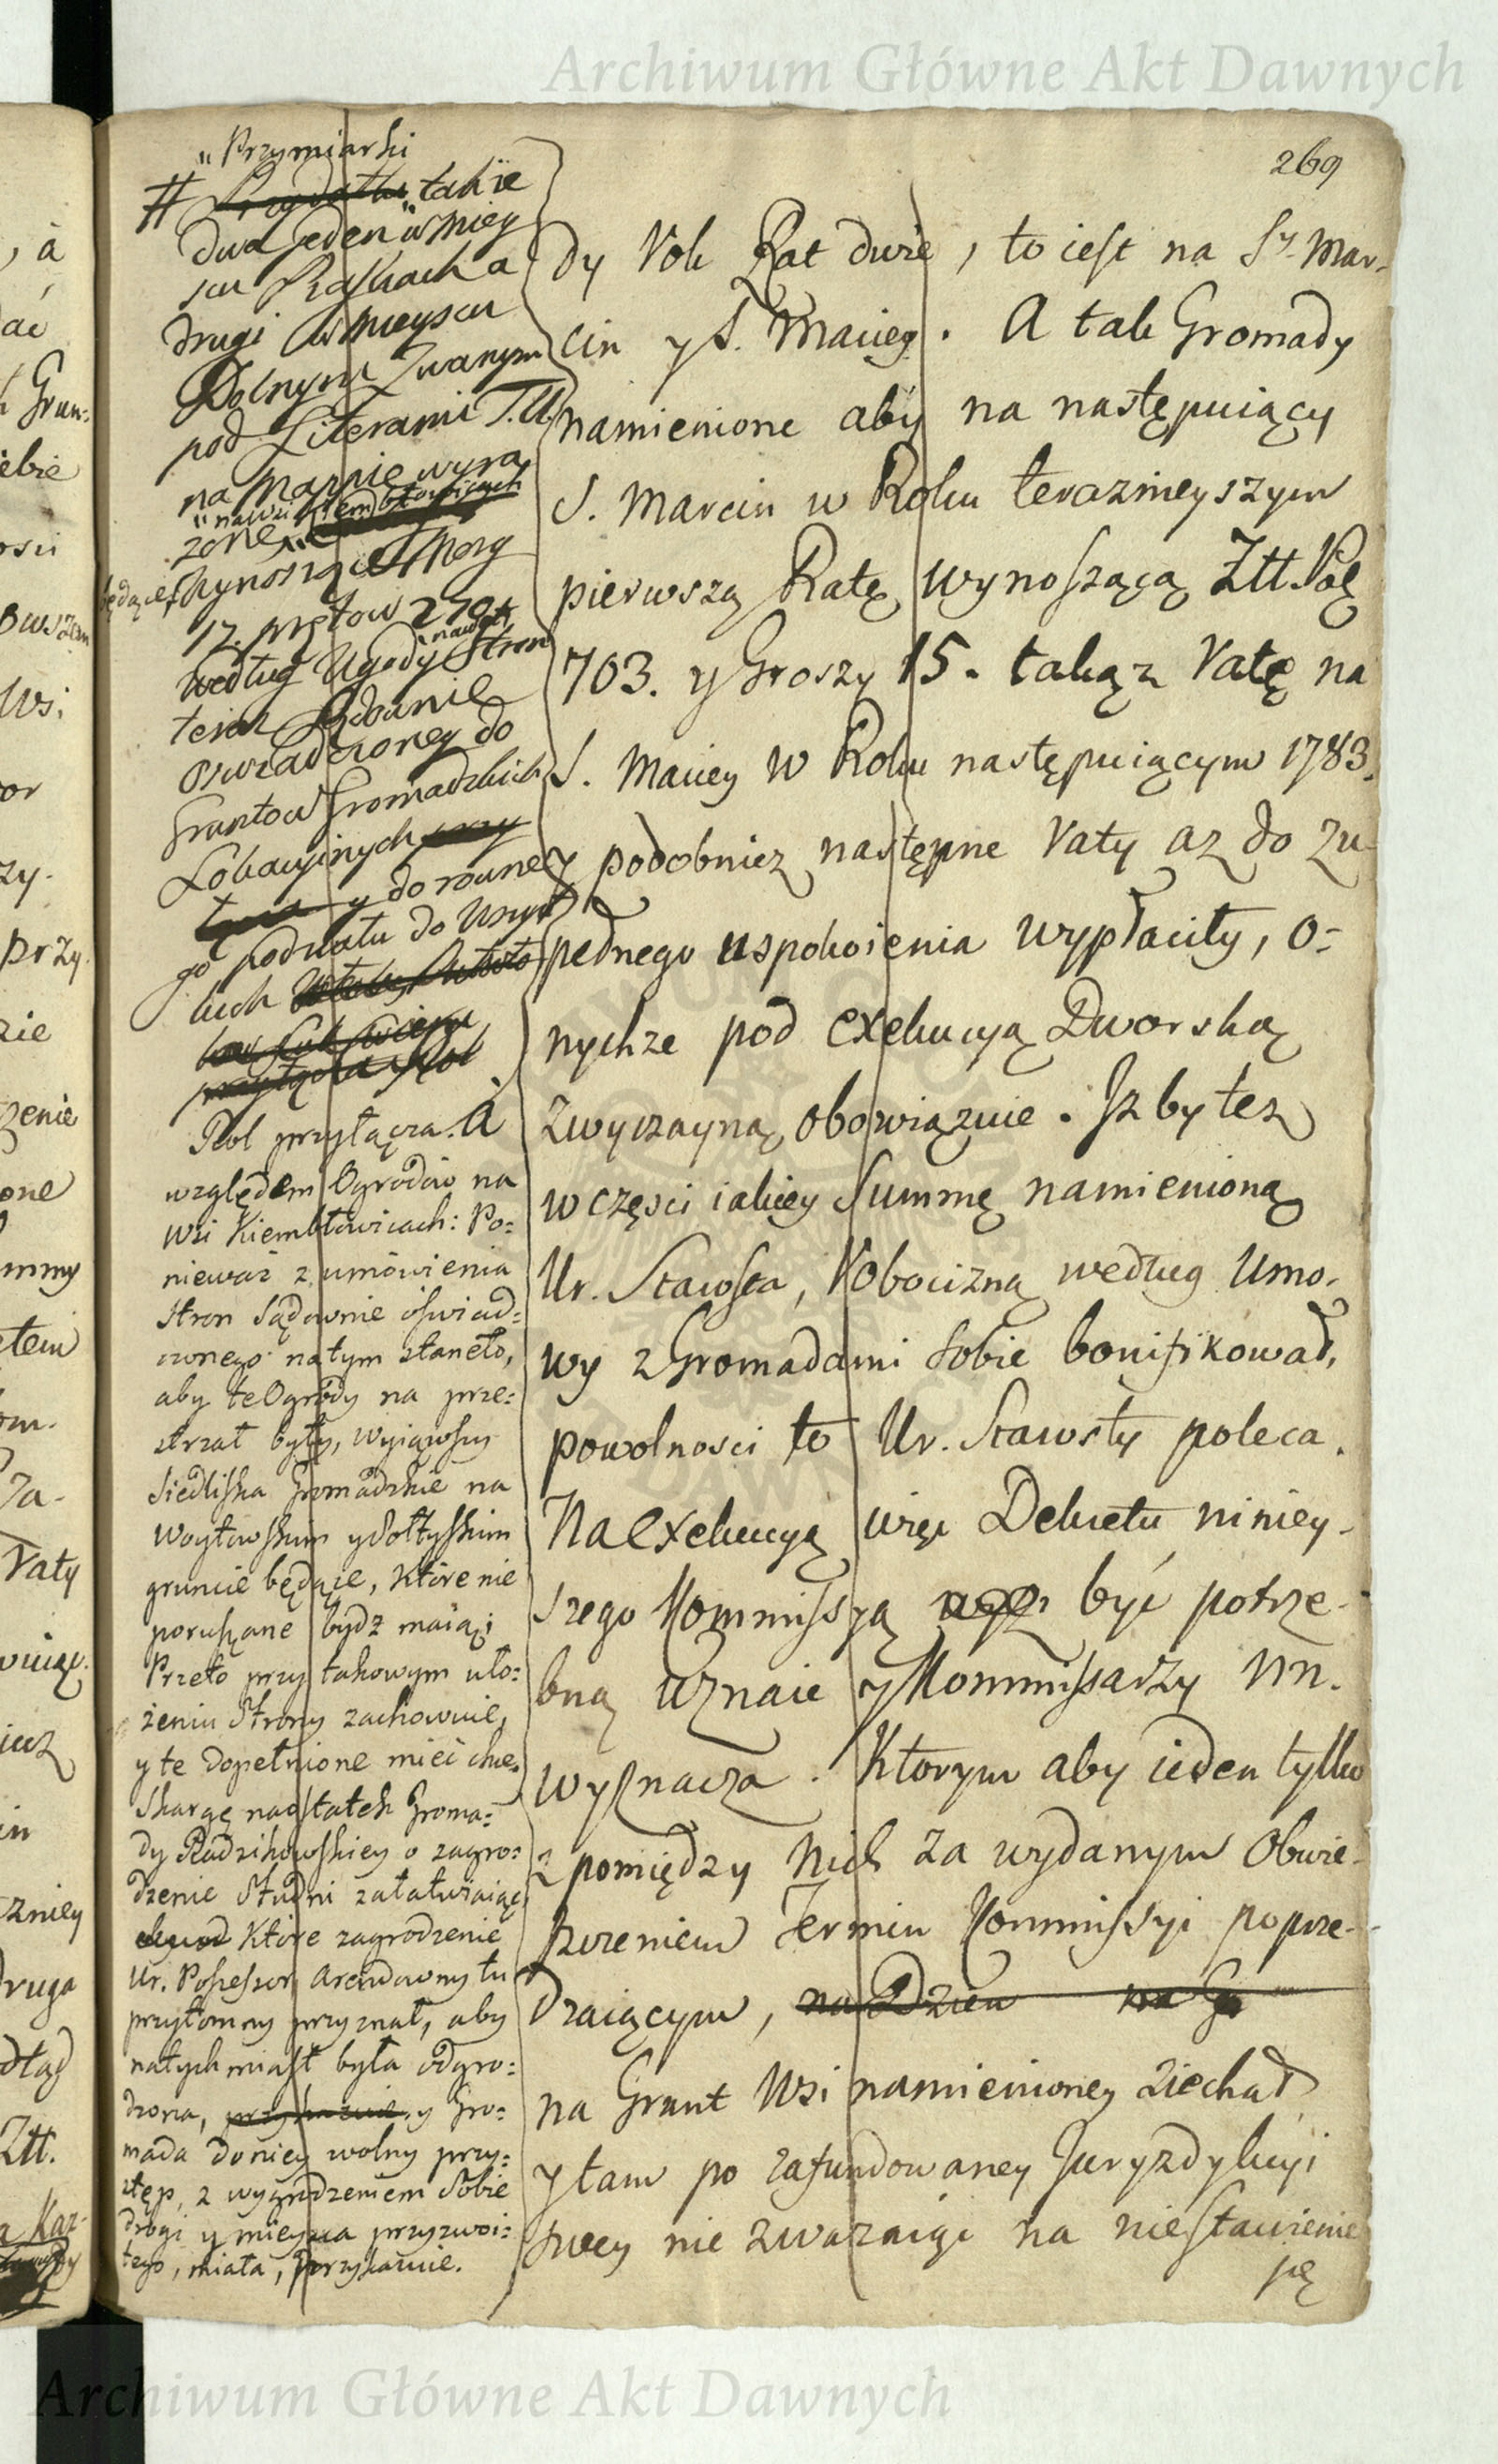 Archiwum Główne Akt Dawnych
269
"Przymiarki
# także
dwa jeden w miey
scu Piaskach a
drugi w mieyscu
Dolnym Zwanym
pod Literami T.U.
na Mappie wyra
"na wsi Kiembłowicach
żone,
będące, wynoszące Morg
17. prętow 279.
według Ugody "nawet" Stron
teraz Sądownie
oswiadczoney do
Gruntow Gromadzkich
Lokacyinych
y do rowne
go podziału do wszyst
kich
Rol
Pol przyłącza. A
względem Ogrodów na
Wsi Kiembłowicach: Po=
nieważ z umówienia
stron Sądownie óswiad=
czonego na tym stanęło,
aby te Ogrody na prze=
strzał były, wyiąwszy
Siedliska Gromadzkie na
Woytowskim y Sołtyskim
gruncie będące, które nie
poruszane bydz maią;
Przeto przy takowym uło=
żeniu Strony zachowuie,
y te dopełnione mieć chce.
Skargę naostatek Groma=
dy Radzikowskiey o zagro=
dzenie Studni załatwiaiąc,
Które zagrodzenie
Ur. Possessor Arendowny tu
przytomny przyznał, aby
natychmiast była odgro=
dzona, przykazuie, y Gro=
mada do niey wolny przy=
stęp, z wygrodzeniem Sobie
drogi y mieysca przyzwoi=
tego, miała, przykazuie.
dy Rok Rat dwie, to iest na Sy. Mar=
cin y S. Maciey. A tak Gromady
namienione aby na następuiący
S. Marcin w Roku terazнieyszym
pierwszą Ratę wynoszącą Ztt. Pol
703. y Groszy 15. takąz Ratę na
S. Maciey w Roku następuiącym 1783.
y podobniez następne Raty az do zu=
pełnego uspokoienia wypłaciły, o=
nychze pod exekucyą Dworską
zwyczayną obowiązuie. Jzby tez
w częsci iakiey Summę namienioną
Ur. Starosta, Robocizną według Umo=
wy z Gromadami sobie bonifikował,
powolnosci to Ur. Starosty poleca.
Na exekucyą więc Dekretu niniey=
szego Kommissyą być potrze=
bną uznaie y Kommissarzy NN.
wyznacza. Ktorym aby ieden tylko
z pomiędzy Nich za wydanym Obwie=
szczeniem Termin Kommissyi poprze=
dzaiącym, na Dzien
na Grunt Wsi namienioney ziechał
y tam po zafundowaney Juryzdykcyi
swey nie zwazaiąc na niestawienie
się
Archiwum Główne Akt Dawnych